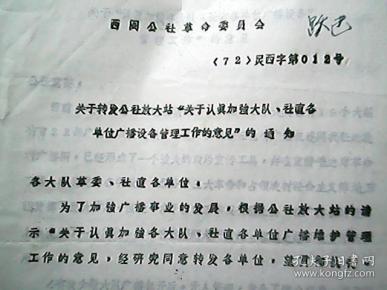 西闵公社革命委员会
(72)民西字第012号
关于转发公社放大站“关于认真加强大队、社直各
单位广播设备管理工作的意见”的通知
各大队革委、社直各单位：
为了加强广播事业的发展，根据公社放大站的请
示“关于认真加强各大队、社直各单位广播维护管理
工作的意见，经研究同意转发各单位，望
孔夫子旧书网